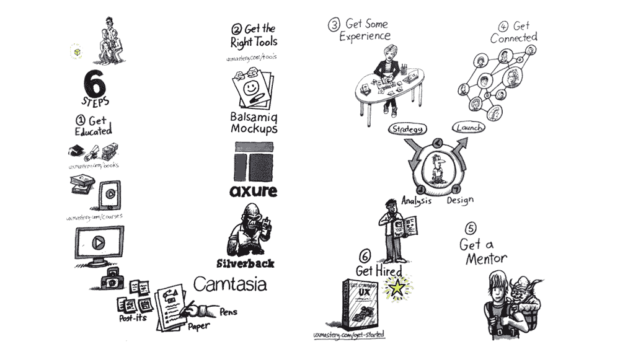 6
STEPS
① Get
Educated
uxmastery.com/books
uxmastery.com/courses
② Get the
Right Tools
uxmastery.com/tools
Balsamiq
Mockups
axure
Silverback
Camtasia
Post-its
Paper
Pens
③ Get Some
Experience
④ Get
Connected
Strategy
Launch
Analysis
Design
⑤
Get a
Mentor
⑥
Get Hired
UX
uxmastery.com/get-started